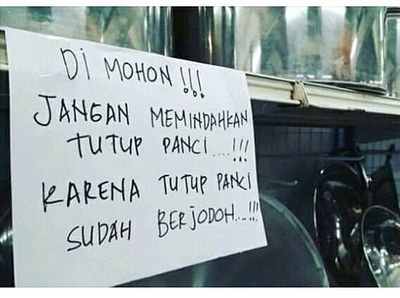 DI MOHON!!!
JANGAN MEMINDAHKAN
TUTUP PANCI....!!!
KARENA TUTUP PANCI
SUDAH BERJODOH...!!!